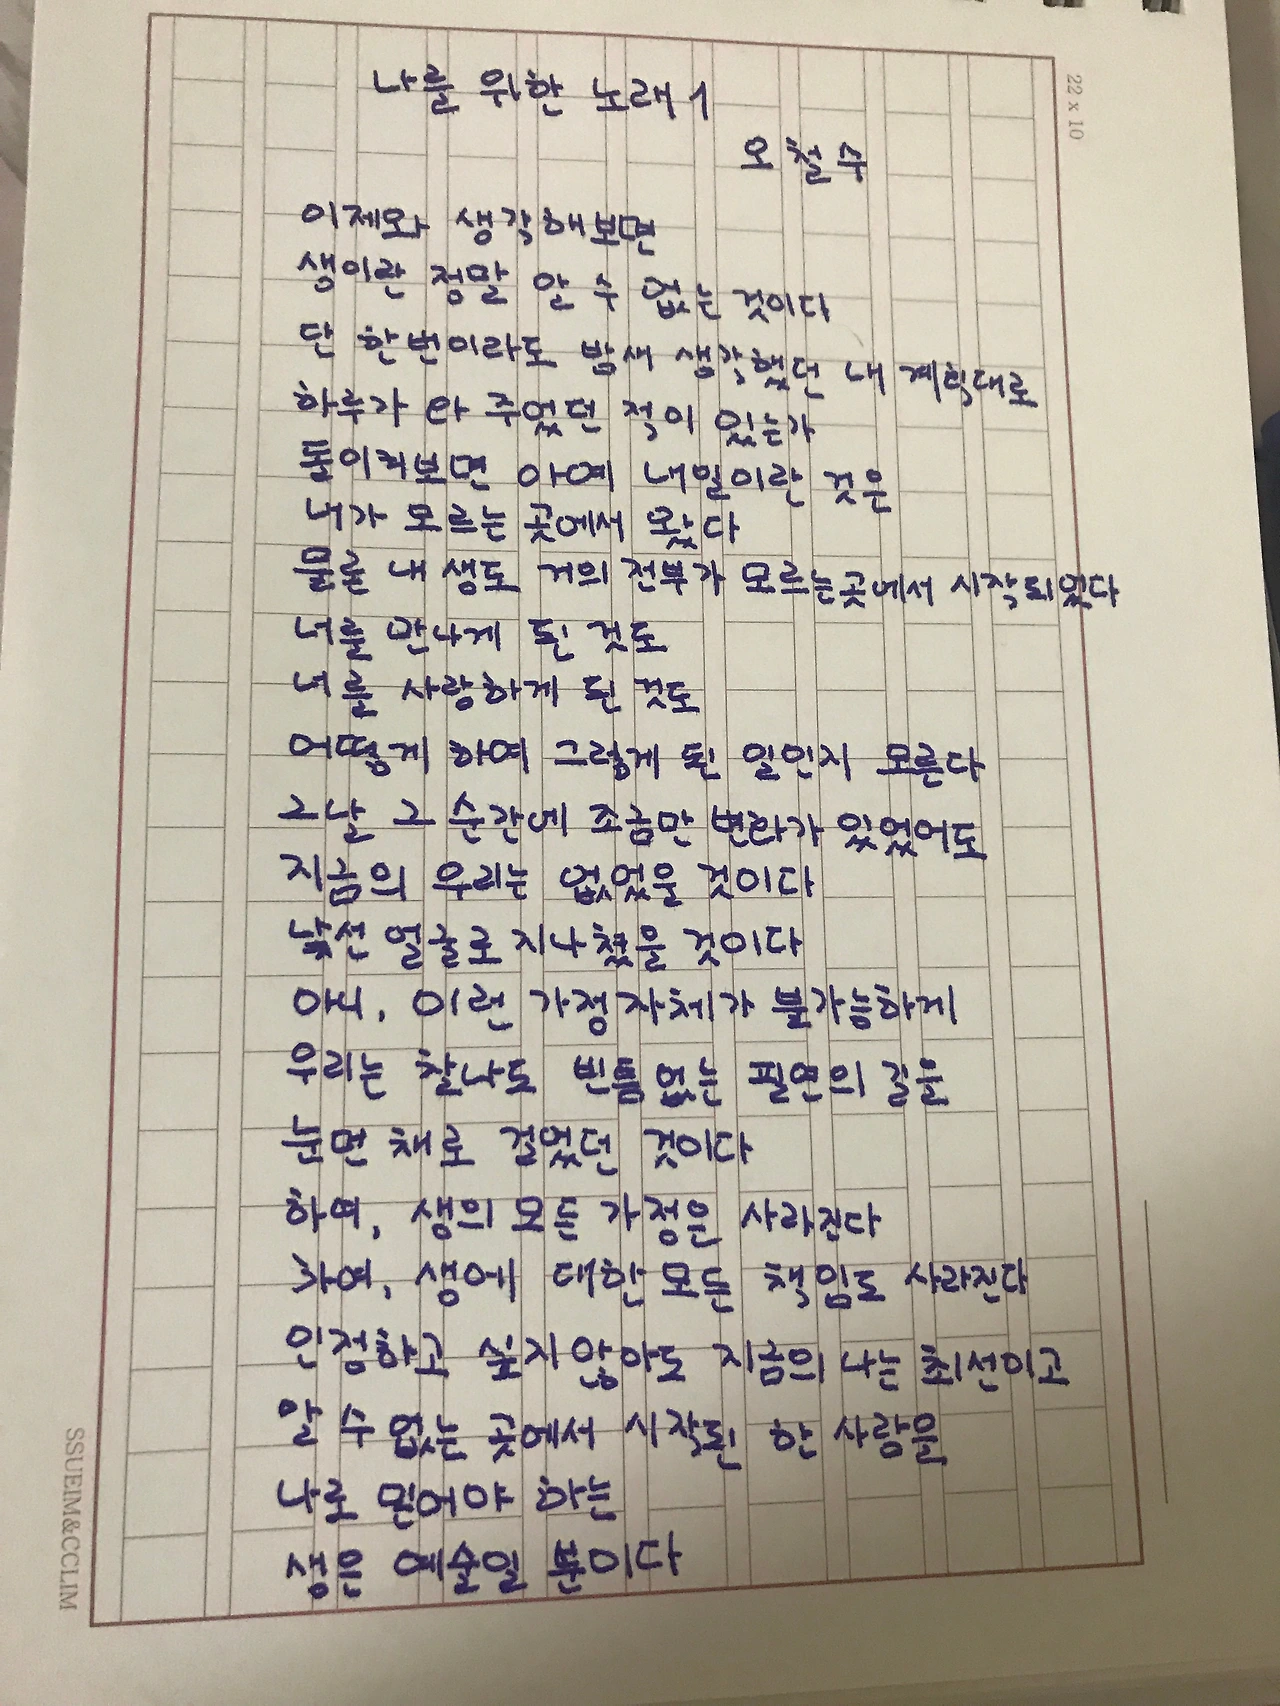 나를 위한 노래 1
오철수
이제와 생각해보면
생이란 정말 알 수 없는 것이다
단 한번이라도 밤새 생각했던 내 계획대로
하루가 와 주었던 적이 있는가
돌이켜보면 아예 내일이란 것은
내가 모르는 곳에서 왔다
물론 내 생도 거의 전부가 모르는곳에서 시작되었다
너를 만나게 된 것도
너를 사랑하게 된 것도
어떻게 하여 그렇게 된 일인지 모른다
그날 그 순간에 조금만 변화가 있었어도
지금의 우리는 없었을 것이다
낯선 얼굴로 지나쳤을 것이다
아니, 이런 가정자체가 불가능하게
우리는 찰나도 빈틈없는 필연의 길을
눈먼 채로 걸었던 것이다
하여, 생의 모든 가정은 사라진다
하여, 생에 대한 모든 책임도 사라진다
인정하고 싶지않아도 지금의 나는 최선이고
알 수 없는 곳에서 시작된 한 사랑을
나로 믿어야 하는
생은 예술일 뿐이다
22 x 10
SSUEIM&CCLIM